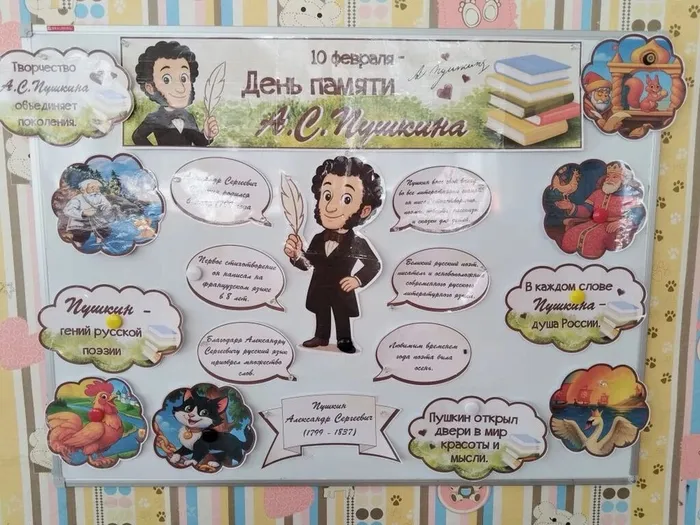 Творчество
А.С.Пушкина
объединяет
поколения.
10 февраля -
День памяти
А.С.Пушкина
А. Пушкинъ
Сергеевич
родился
Первое стихотворение
он написал на
французском языке
в 8 лет.
Благодаря Александру
Сергеевичу русский язык
приобрел множество
слов.
Пушкин
Великий русский поэт,
писатель и основоположник
современного русского
литературного языка.
Любимым временем
года поэта была
осень.
Пушкин -
гений русской
поэзии
В каждом слове
Пушкина -
душа России.
Пушкин
Александр Сергеевич
(1799 - 1837)
Пушкин открыл
двери в мир
красоты и
мысли.